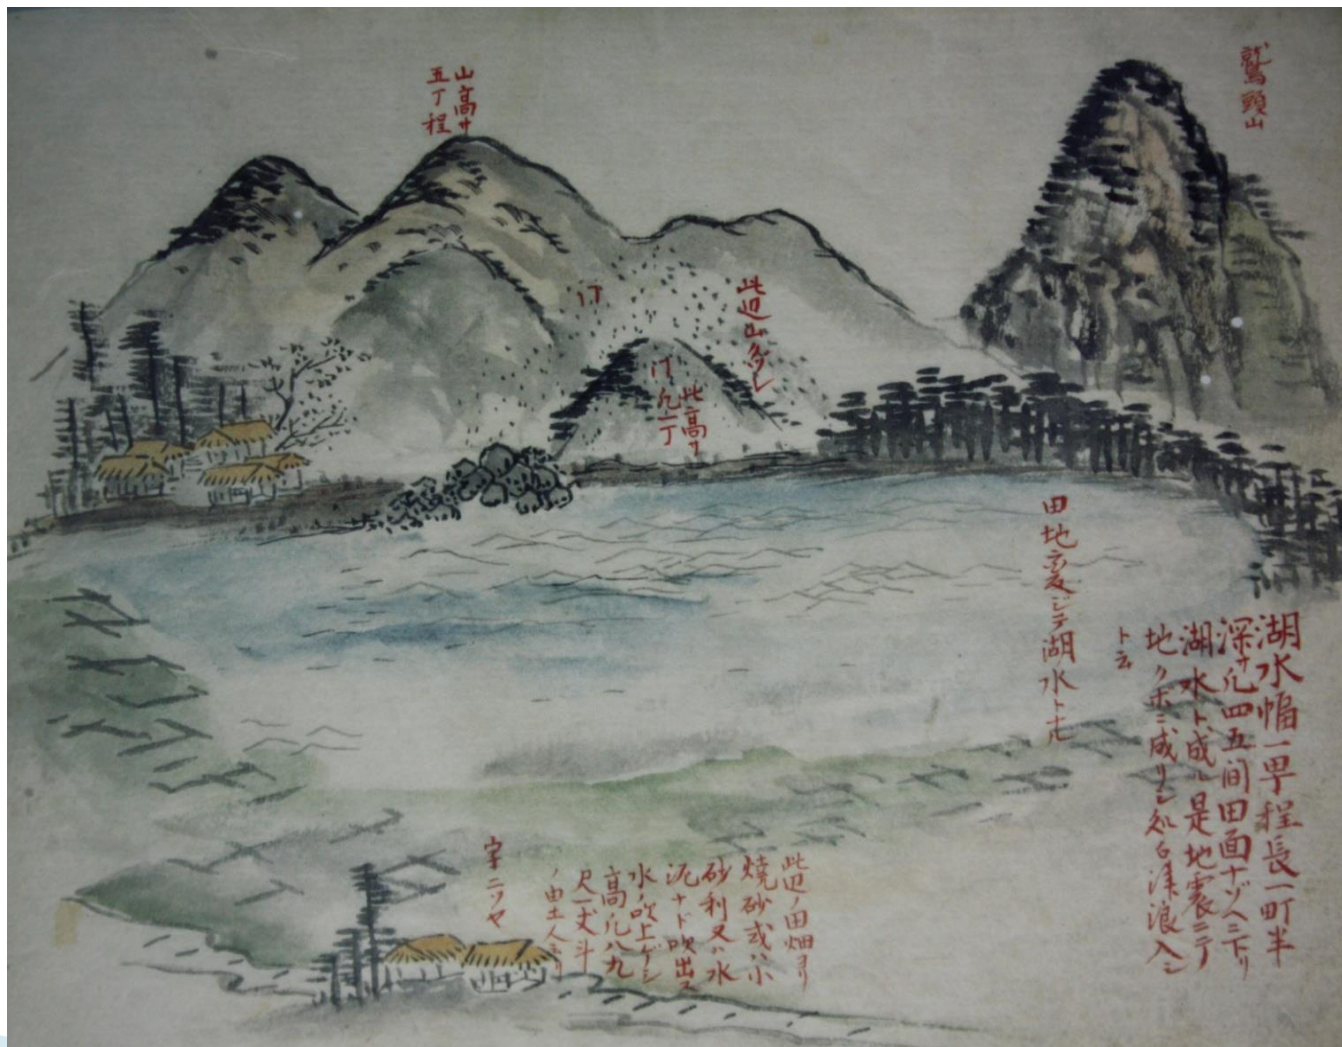 鷲頭山
山高サ
五丁程
此辺山多シ
此高サ
凡一丁
田地変ジテ湖水ト
湖水幅一里程長一町半
深サ凡四五間田面ナゾヘニ下リ
湖水ト成ル是地震ニテ
地クボニ成リシ処ヘ津浪入シ
ト云
此辺ノ田畑ヨリ
焼砂或ハ小
砂利又ハ水
泥ナド吹出ス
水ノ吹上ゲシ
高凡八九
尺一丈斗
ノ由土人云リ
字二ツヤ